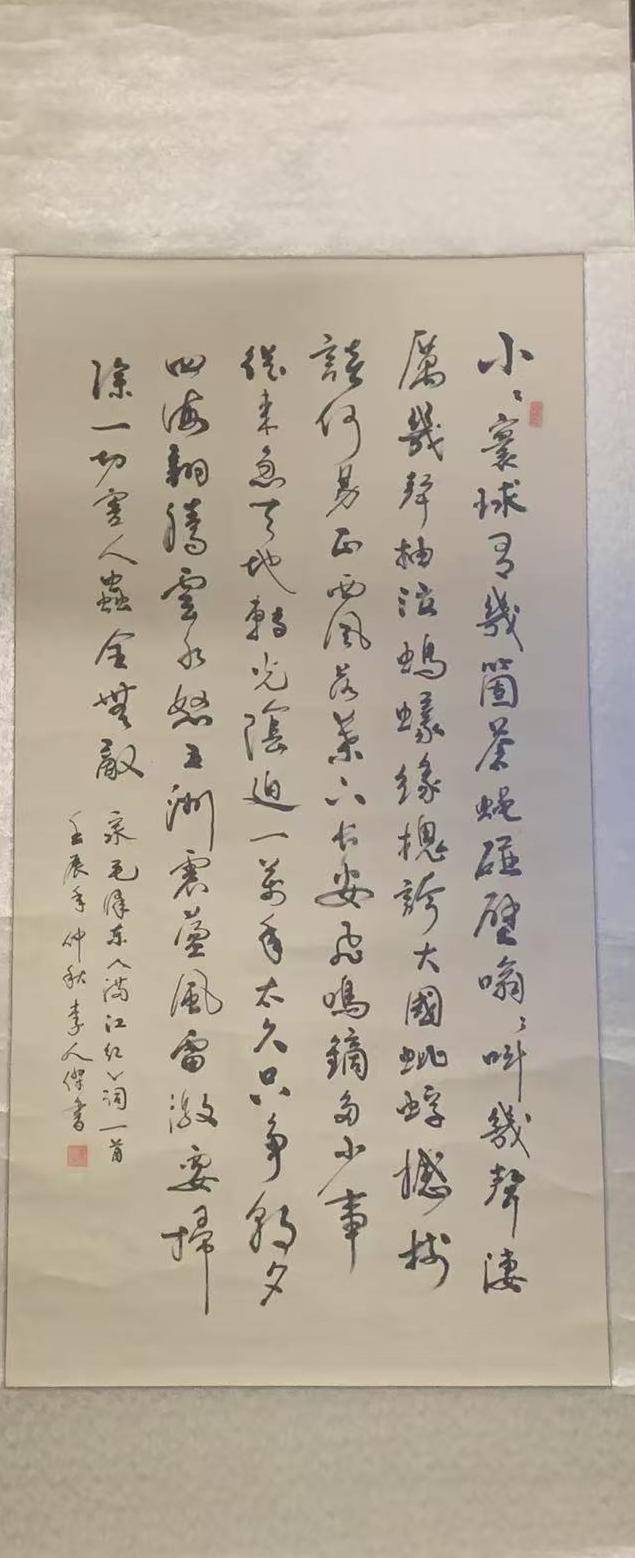 小〻寰球有幾箇蒼蠅碰壁嗡〻叫幾聲淒
厲幾聲抽泣螞蟻緣槐誇大國蚍蜉撼樹
談何易正西風落葉下長安飛鳴鏑多少事
從来急天地轉光陰迫一萬年太久只争朝夕
四海翻騰雲水怒五洲震盪風雷激要掃
除一切害人蟲全無敵
录毛泽东〈满江红〉词一首
壬辰年仲秋李人傑書